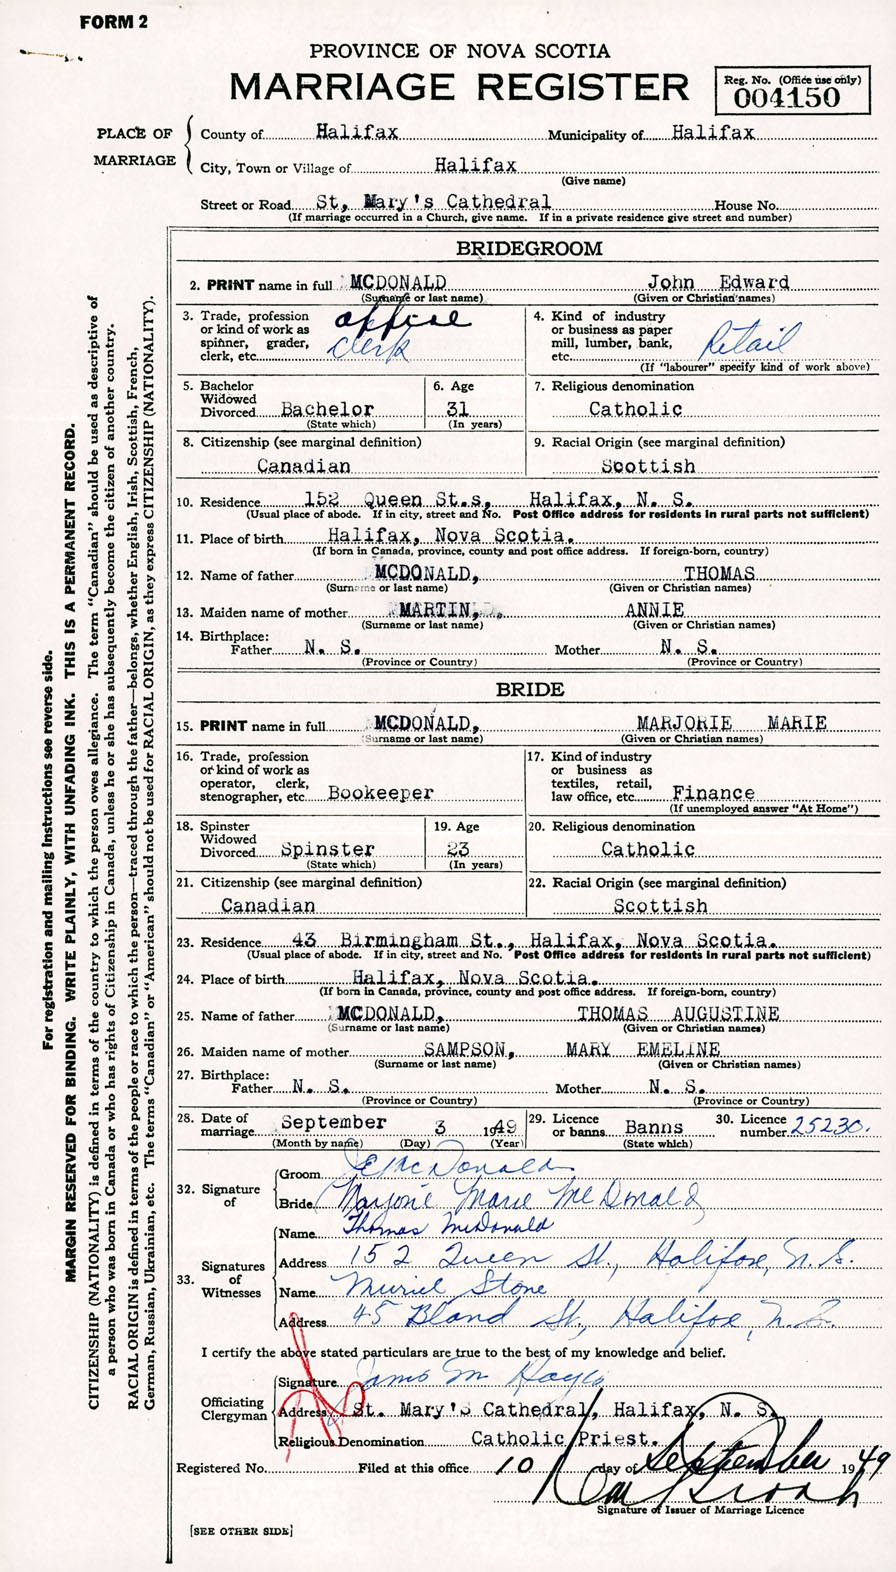 FORM 2
PROVINCE OF NOVA SCOTIA
MARRIAGE REGISTER
Reg. No. (Office use only)
004150
PLACE OF MARRIAGE
County of Halifax Municipality of Halifax
City, Town or Village of Halifax
(Give name)
Street or Road St, Mary's Cathedral House No.
(If marriage occurred in a Church, give name. If in a private residence give street and number)
For registration and mailing instructions see reverse side.
MARGIN RESERVED FOR BINDING. WRITE PLAINLY, WITH UNFADING INK. THIS IS A PERMANENT RECORD.
CITIZENSHIP (NATIONALITY) is defined in terms of the country to which the person owes allegiance. The term "Canadian" should be used as descriptive of
a person who was born in Canada or who has rights of Citizenship in Canada, unless he or she has subsequently become the citizen of another country.
RACIAL ORIGIN is defined in terms of the people or race to which the person—traced through the father—belongs, whether English, Irish, Scottish, French,
German, Russian, Ukrainian, etc. The terms "Canadian" or "American" should not be used for RACIAL ORIGIN, as they express CITIZENSHIP (NATIONALITY).
BRIDEGROOM
2. PRINT name in full MCDONALD John Edward
(Surname or last name) (Given or Christian names)
3. Trade, profession
or kind of work as
spinner, grader,
clerk, etc. office
clerk
4. Kind of industry
or business as paper
mill, lumber, bank,
etc. Retail
(If "labourer" specify kind of work above)
5. Bachelor
Widowed
Divorced Bachelor
(State which)
6. Age
31
(In years)
7. Religious denomination
Catholic
8. Citizenship (see marginal definition)
Canadian
9. Racial Origin (see marginal definition)
Scottish
10. Residence 152 Queen St.s, Halifax, N. S.
(Usual place of abode. If in city, street and No. Post Office address for residents in rural parts not sufficient)
11. Place of birth Halifax, Nova Scotia.
(If born in Canada, province, county and post office address. If foreign-born, country)
12. Name of father MCDONALD, THOMAS
(Surname or last name) (Given or Christian names)
13. Maiden name of mother MARTIN, ANNIE
(Surname or last name) (Given or Christian names)
14. Birthplace:
Father N. S. Mother N. S.
(Province or Country) (Province or Country)
BRIDE
15. PRINT name in full MCDONALD, MARJORIE MARIE
(Surname or last name) (Given or Christian names)
16. Trade, profession
or kind of work as
operator, clerk,
stenographer, etc. Bookeeper
17. Kind of industry
or business as
textiles, retail,
law office, etc. Finance
(If unemployed answer "At Home")
18. Spinster
Widowed
Divorced Spinster
(State which)
19. Age
23
(In years)
20. Religious denomination
Catholic
21. Citizenship (see marginal definition)
Canadian
22. Racial Origin (see marginal definition)
Scottish
23. Residence 43 Birmingham St., Halifax, Nova Scotia.
(Usual place of abode. If in city, street and No. Post Office address for residents in rural parts not sufficient)
24. Place of birth Halifax, Nova Scotia.
(If born in Canada, province, county and post office address. If foreign-born, country)
25. Name of father MCDONALD, THOMAS AUGUSTINE
(Surname or last name) (Given or Christian names)
26. Maiden name of mother SAMPSON, MARY EMELINE
(Surname or last name) (Given or Christian names)
27. Birthplace:
Father N. S. Mother N. S.
(Province or Country) (Province or Country)
28. Date of
marriage September 3 1949
(Month by name) (Day) (Year)
29. Licence
or banns Banns
(State which)
30. Licence
number 25230.
32. Signature of
Groom J E McDonald
Bride Marjorie Marie McDonald
33. Signatures of Witnesses
Name Thomas McDonald
Address 152 Queen St., Halifax, N. S.
Name Muriel Stone
Address 45 Bland St., Halifax, N. S.
I certify the above stated particulars are true to the best of my knowledge and belief.
Officiating Clergyman
Signature James M Hayes
Address St. Mary's Cathedral, Halifax, N. S.
Religious Denomination Catholic Priest.
Registered No. Filed at this office 10 day of September 1949
Signature of Issuer of Marriage Licence
[SEE OTHER SIDE]